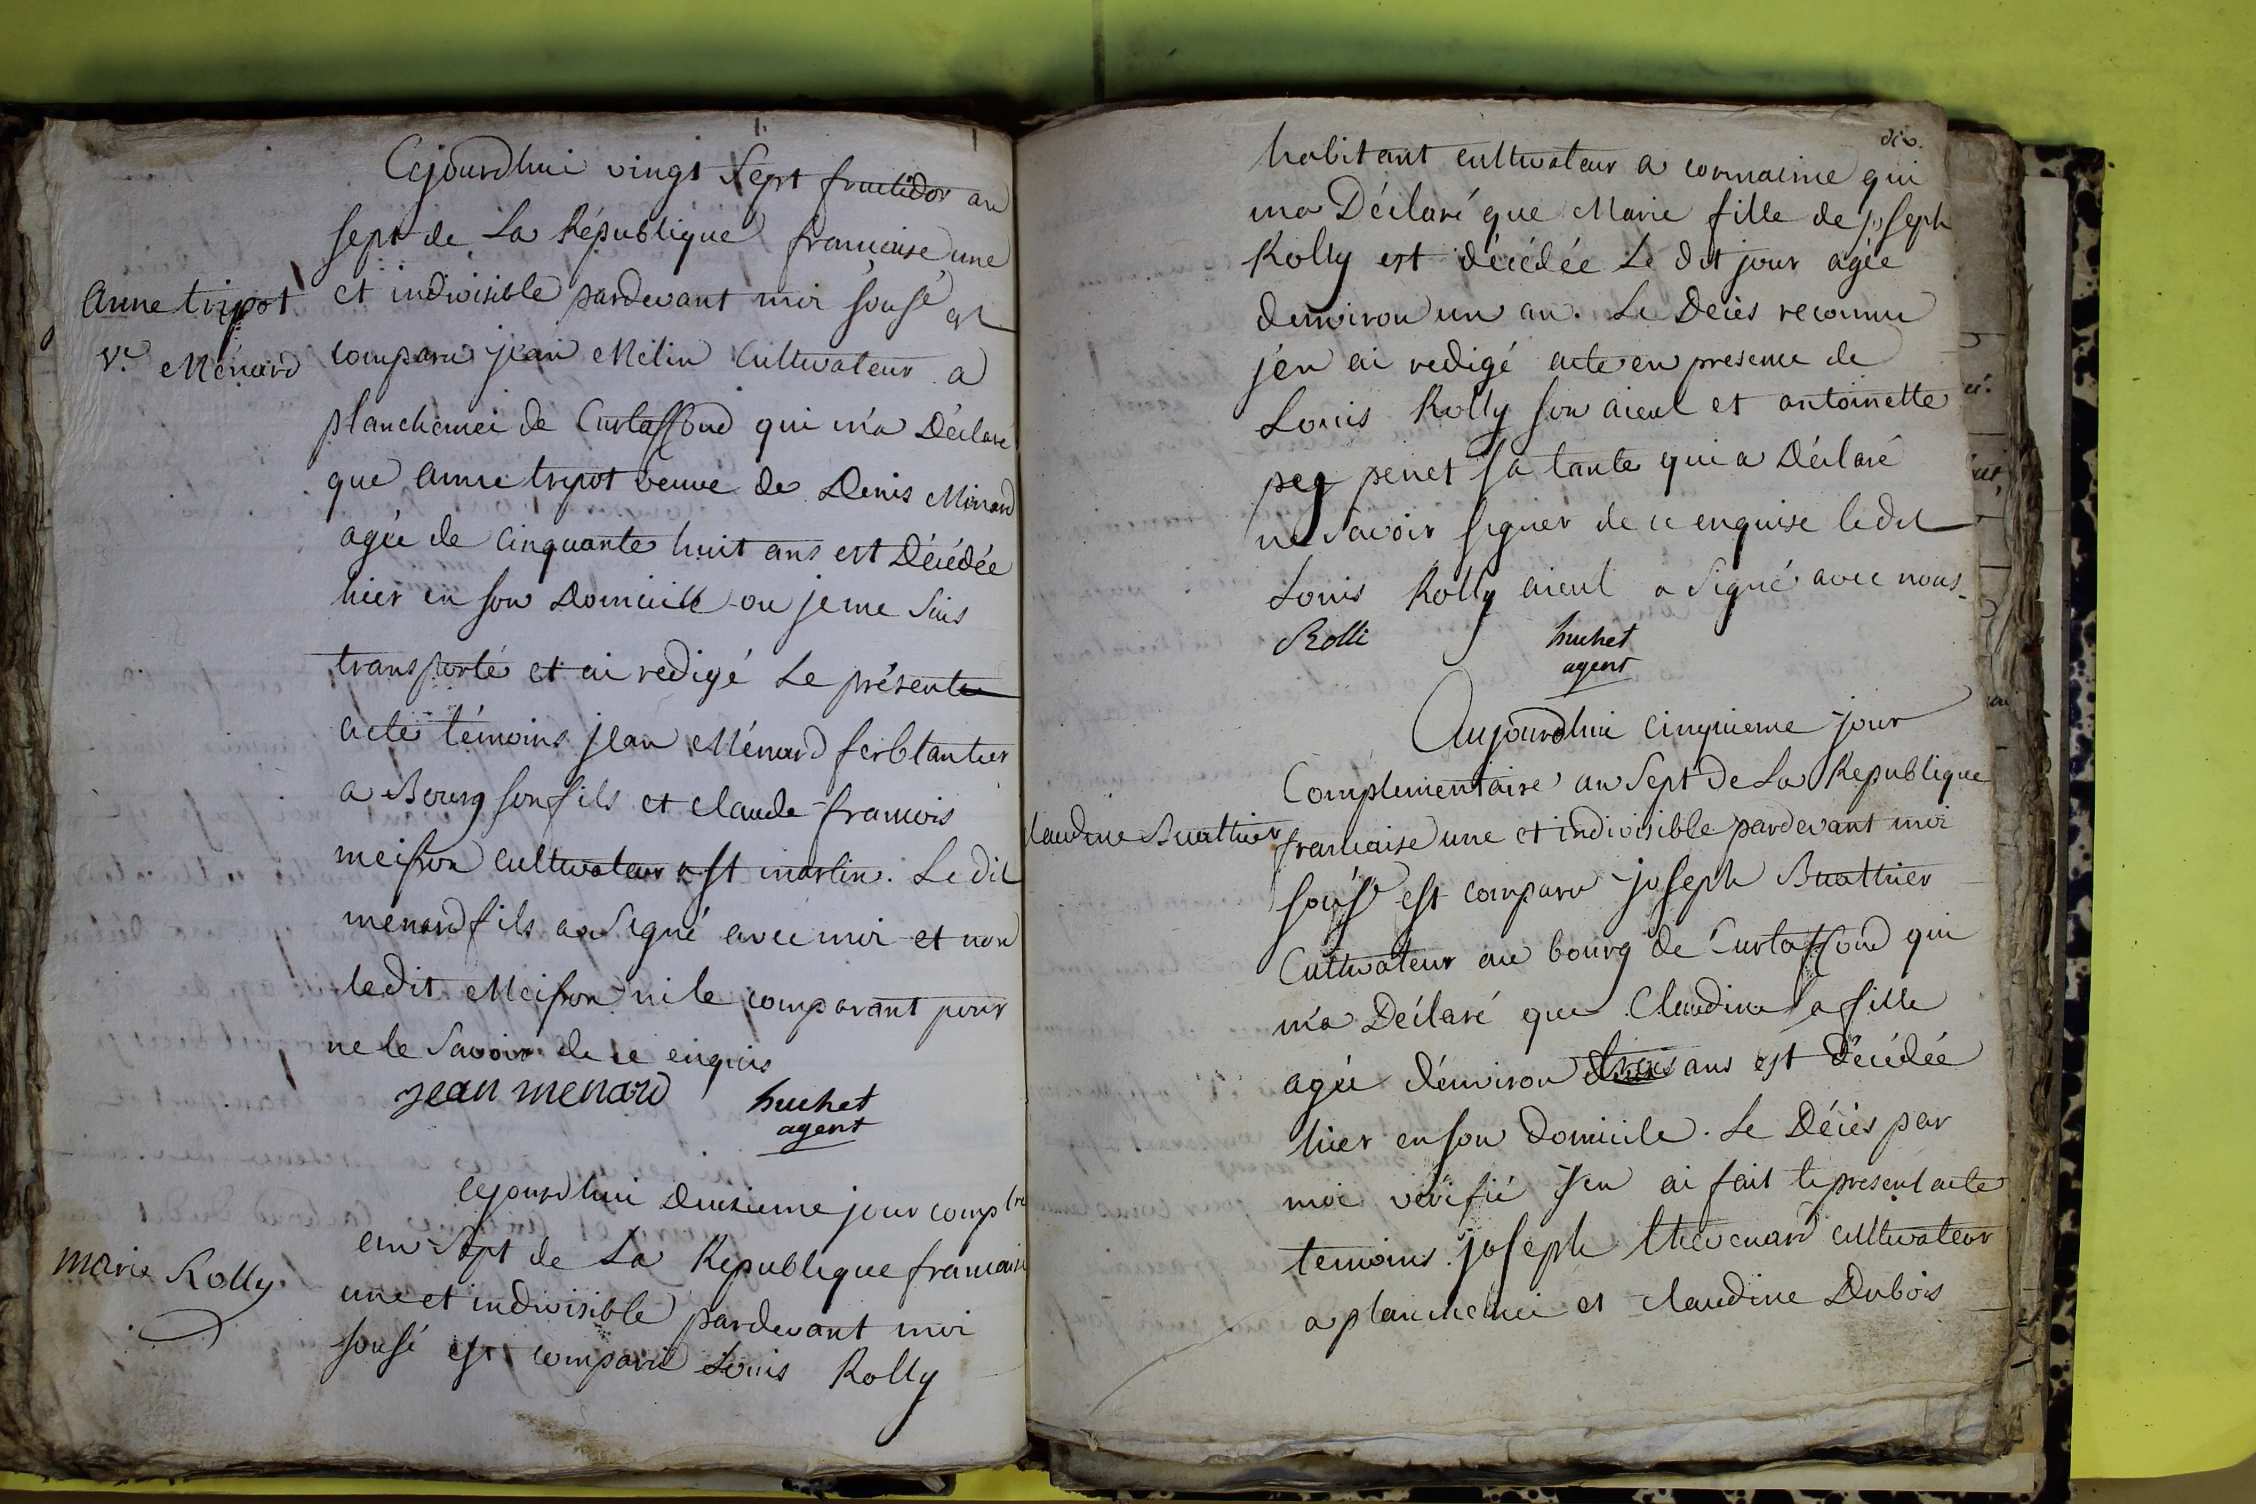 Cejourdhui vingt Sept fructidor an
sept de La République francaise une
anne tripot
et indivisible pardevant moi sousé est
Ve Menard
comparu jean Mélin Cultivateur a
planchemei de Curtaffond qui m'a Déclaré
que anne tripot veuve de Denis Minard
agée de cinquante huit ans est Décédée
hier en son Domicile ou je me suis
transporté et ai redigé Le présente
acte témoins jean Ménard ferblantier
a Bourg son fils et claude francois
meifron cultivateur a St martin. Le dit
menard fils a Signé avec moi et non
ledit Meifron ni le comparant pour
ne le Savoir de ce enquis
jean menard
huchet
agent
Cejourdhui Deuxieme jour complre
an Sept de La Republique francaise
marie Rolly
une et indivisible pardevant moi
sousé est comparu Louis Rolly
dix.
habitant cultivateur a cormaime qui
ma Déclaré que Marie fille de joseph
Rolly est décédée Le dit jour agée
denviron un an. Le Décès reconnu
j'en ai redigé acte en presence de
Louis Rolly son aieul et antoinette
peg penet sa tante qui a Déclaré
ne Savoir signer de ce enquise ledit
Louis Rolly aieul a Signé avec nous
Rolli
huchet
agent
Aujourdhui cinquieme jour
Complementaire an Sept De La Republique
laudine Buathier
francaise une et indivisible pardevant moi
sousé est comparu joseph Buathier
Cultivateur au bourg de Curtaffond qui
m'a Déclaré que Claudine sa fille
agée d'environ trois ans est décédée
hier en son domicile. Le Décès par
moi vérifié j'en ai fait le present acte
temoins joseph thévenard cultivateur
a planchemei et claudine Dubois